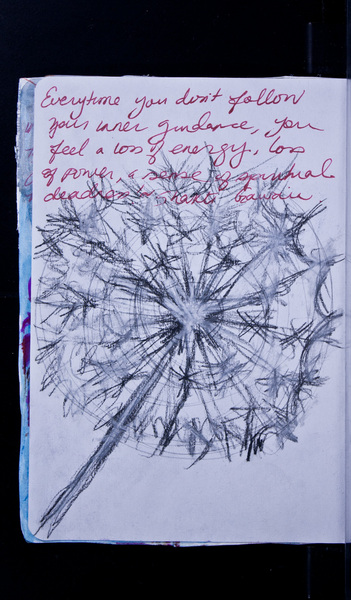 Everytime you don't follow
your inner guidance, you
feel a loss of energy, loss
of power, a sense of spiritual
deadness ~ shakti gawain